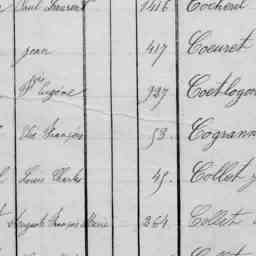 Paul Laurent 1416 Cocherel
Jean 417 Coeuret
Eugène 997 Coetlogon
François 53 Cogrann
Louis Charles 45 Collet
Auguste François Marie 264 Collet